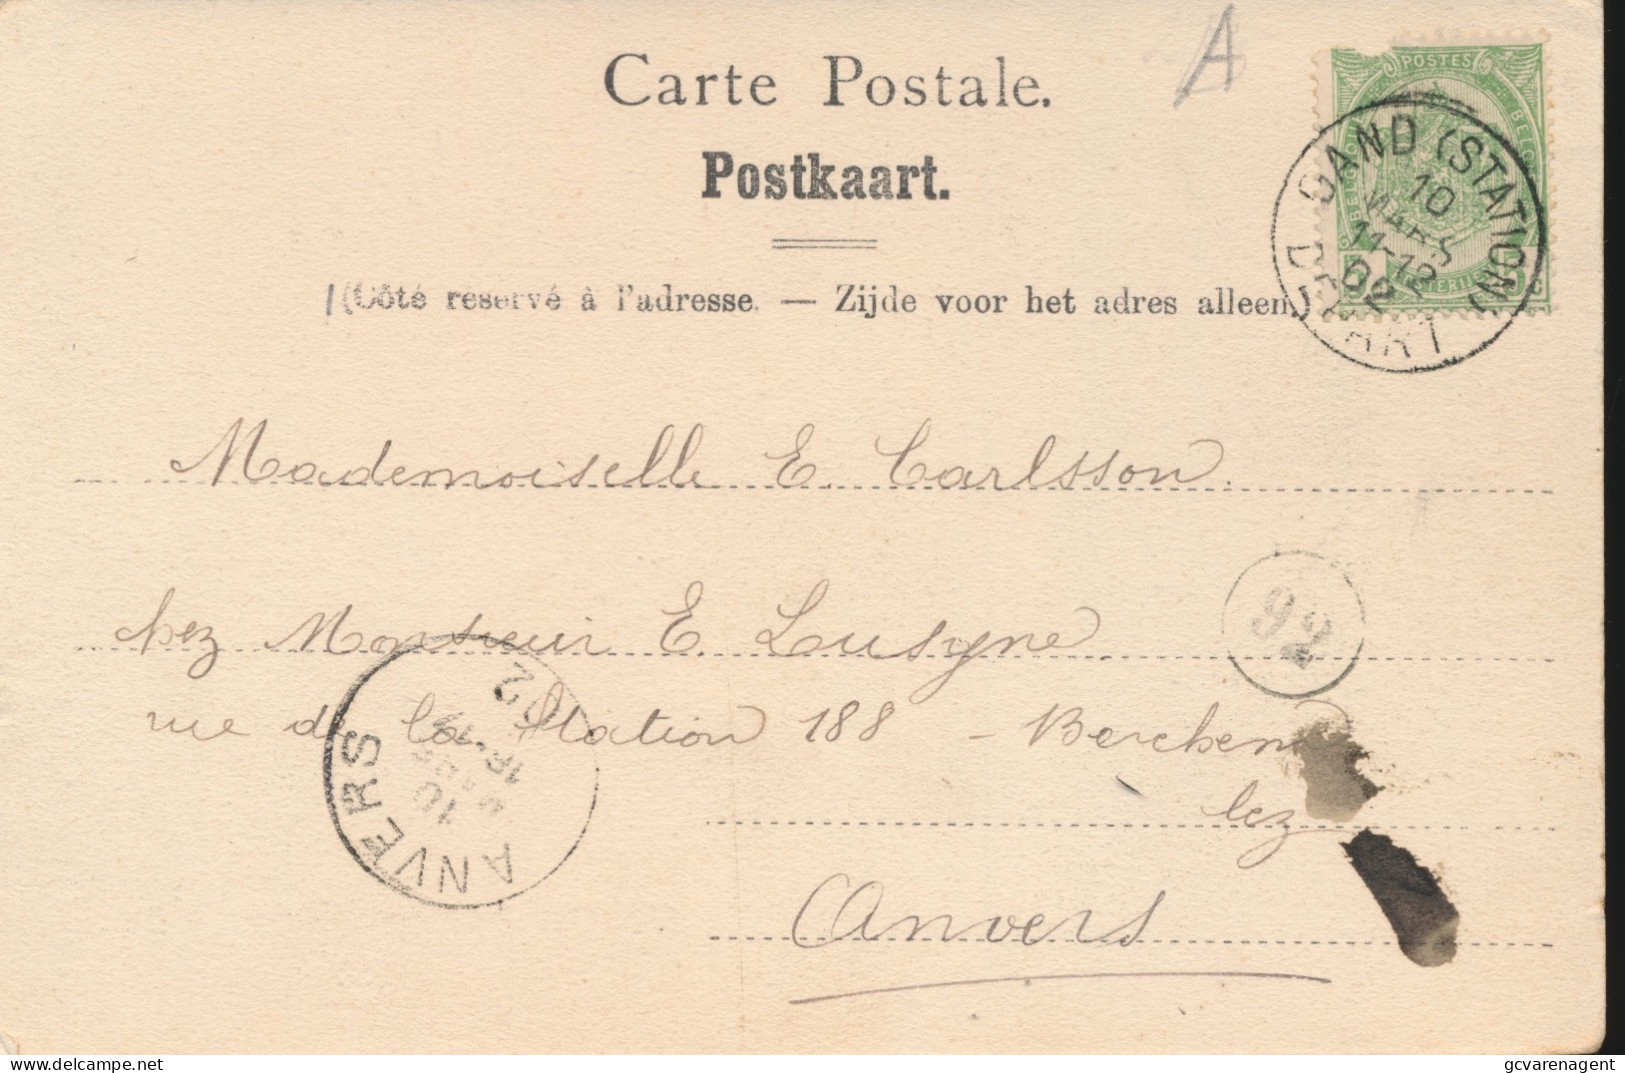 A
Carte Postale.
Postkaart.
(Côté réservé à l'adresse. — Zijde voor het adres alleen.)
POSTES
BELGIQUE BELGIË
GAND (STATION)
10
MARS
11-12
02
DEPART
Mademoiselle E. Carlsson.
chez Monsieur E. Lusyne
92
rue de la Station 188 - Berchem
lez
Anvers
ANVERS
10
1902
delcampe.net
gcvarenagent